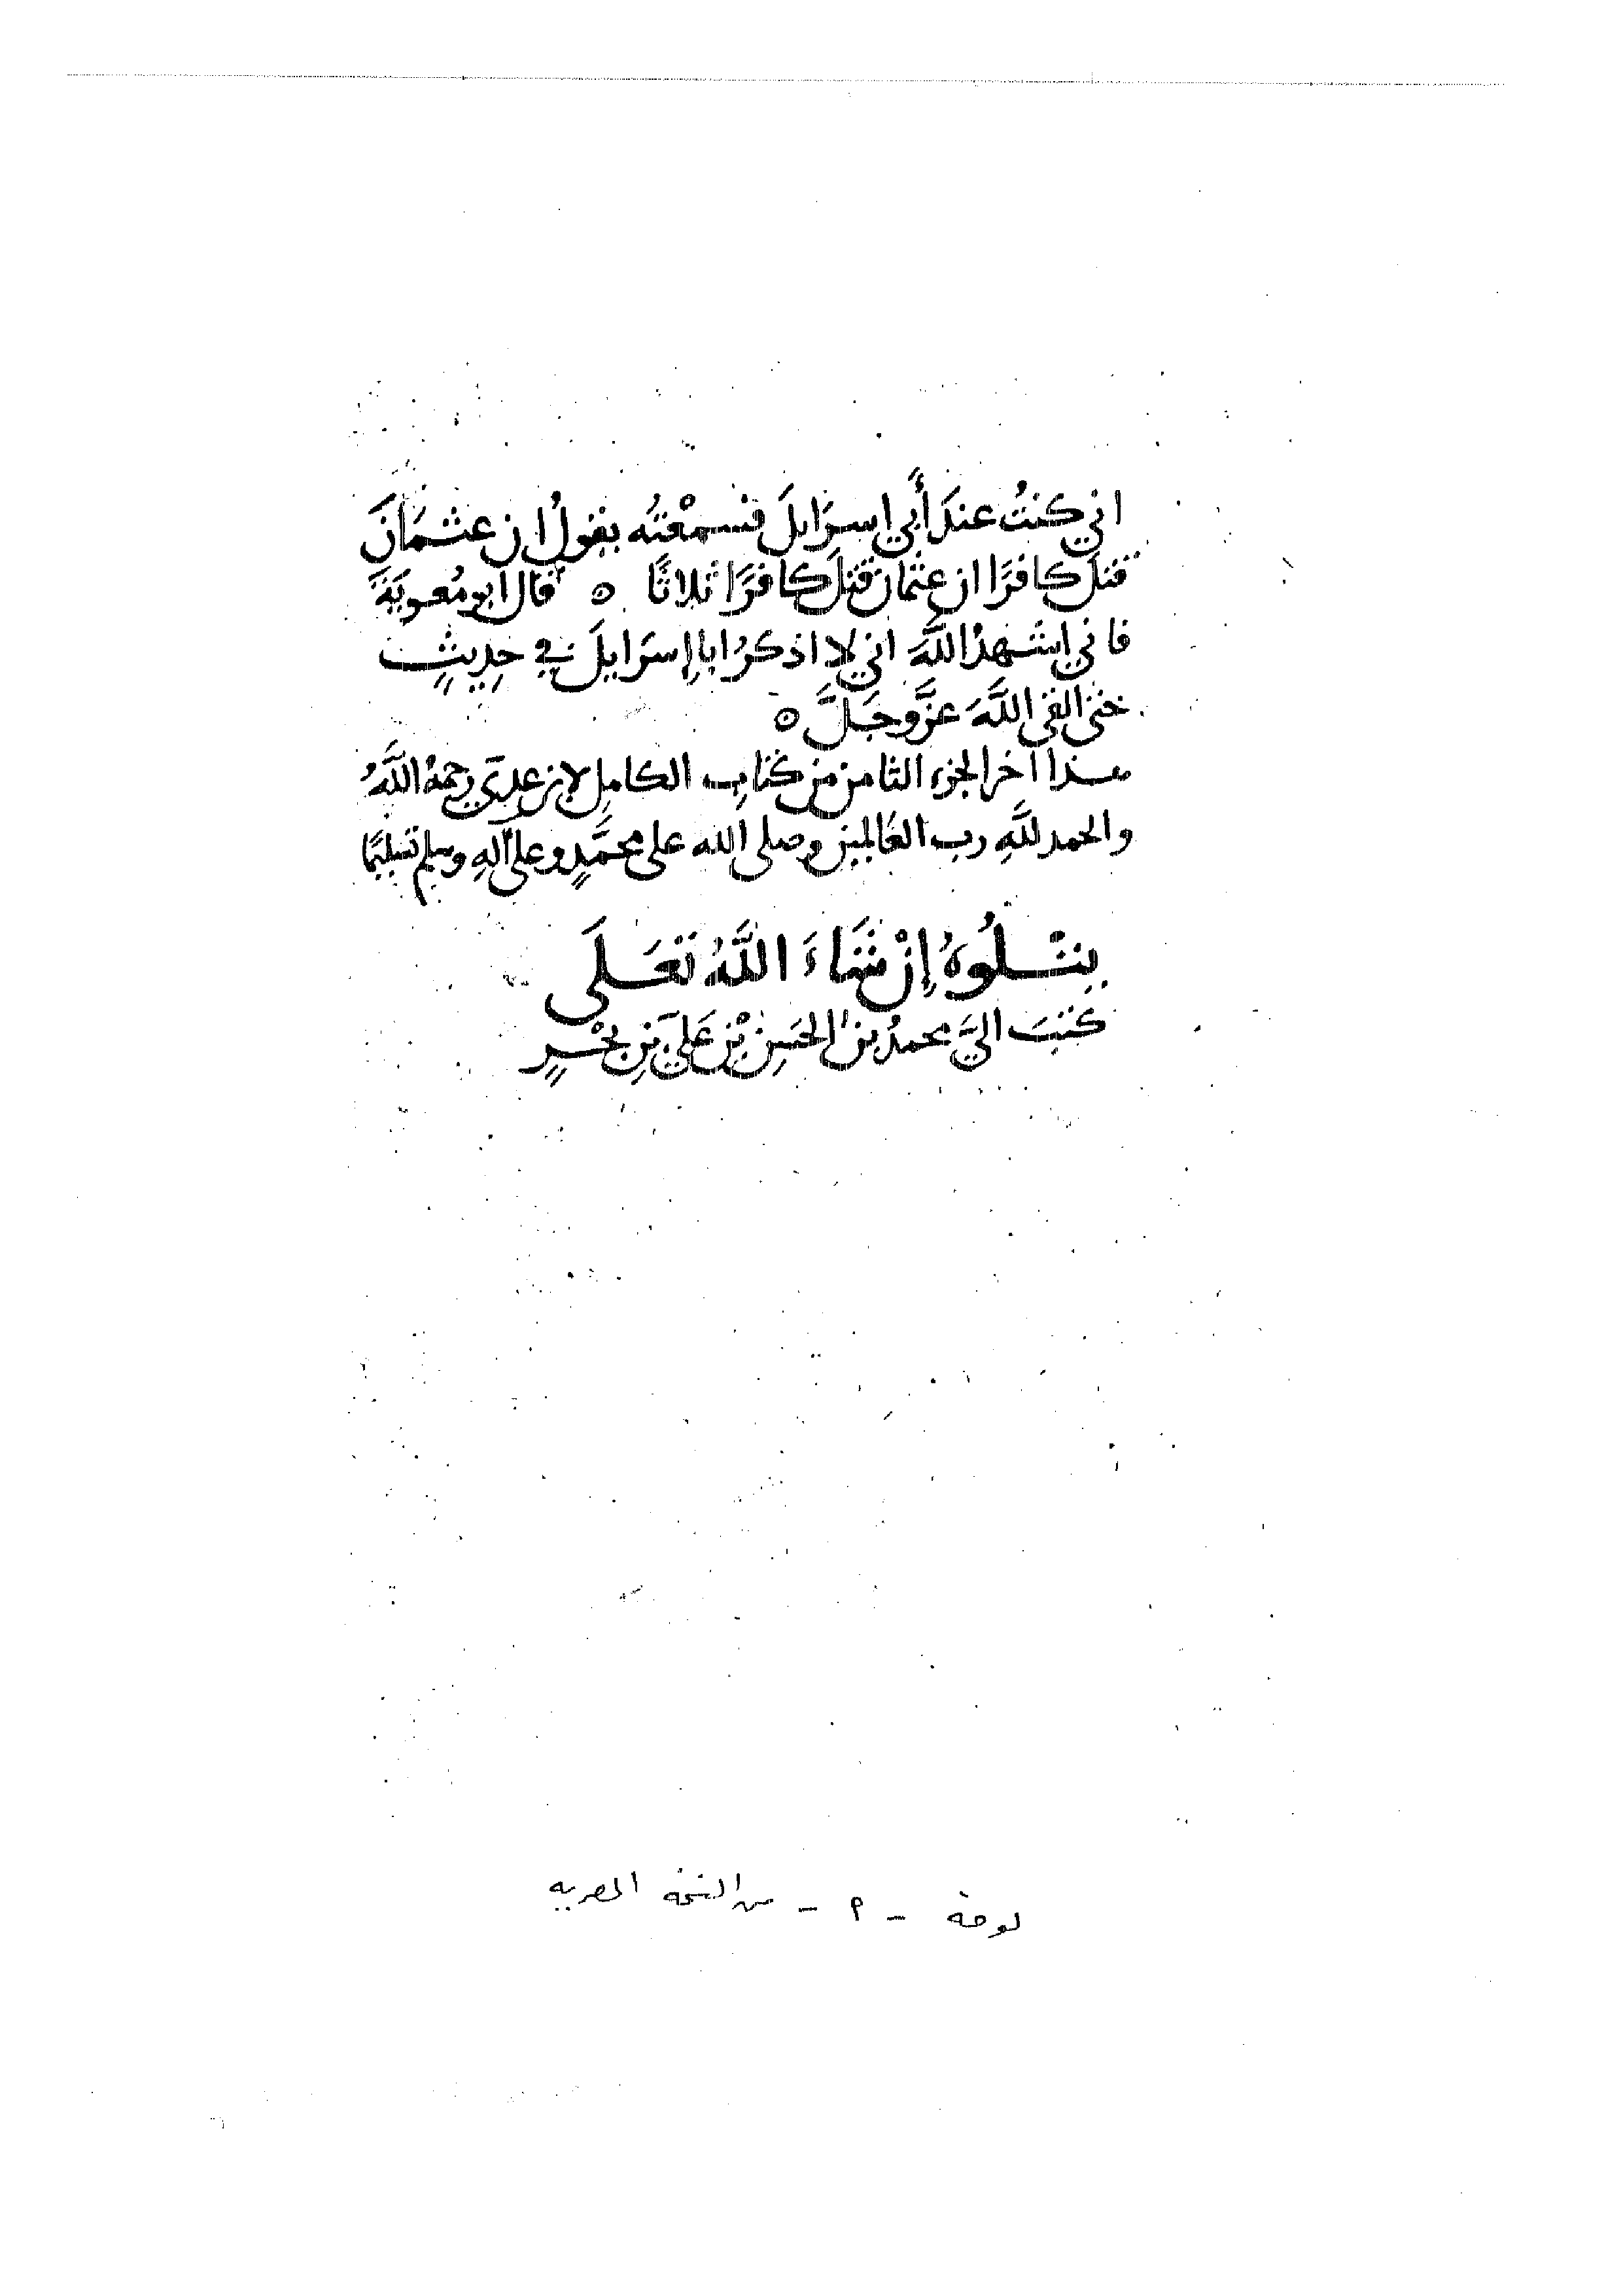 اني كنتُ عندَ أَبي اسرَايلَ فسمعْتُه يقولُ ان عثمَانَ
قتلَ كافرًا ان عثمان قتلَ كافرًا ثلاثًا ٥ قال ابو مُعويَةَ
فاني اشهدُ اللَّهَ اني لا اذكرُ ابا إسرَاييلَ في حدِيثٍ
حتى القى اللَّهَ عزَّ وجَلَّ ٥
هذا آخر الجزء الثامن من كتابِ الكامل لابن عدي رحمهُ اللَّهُ
والحمد للَّهِ رب العَالمين وصلى الله على محمَّدٍ وعلى آلهِ وسلم تسليمًا
يتْلُوهُ إنْ شَاءَ اللَّهُ تعَلَى
كتبَ اليَّ محمدُ بن الحسَنِ بْن عَلي بنِ بحْرٍ
لوحة - ٢ - من النسخة المصريه